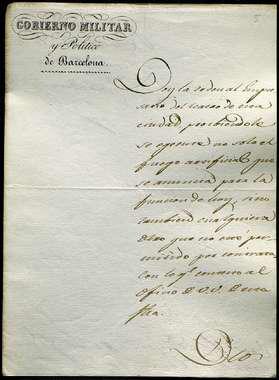 GOBIERNO MILITAR
y Politico
de Barcelona.
Doy la orden al Empre
sario del teatro de esta
ciudad prohibiendole
se egecute no solo el
fuego artificial que
se anuncia para la
funcion de hoy, sino
tambien cualquiera
otro que no esté per
mitido por contrata
con lo q.e contesto al
Oficio D. V. V. de esta
fha.
Dios